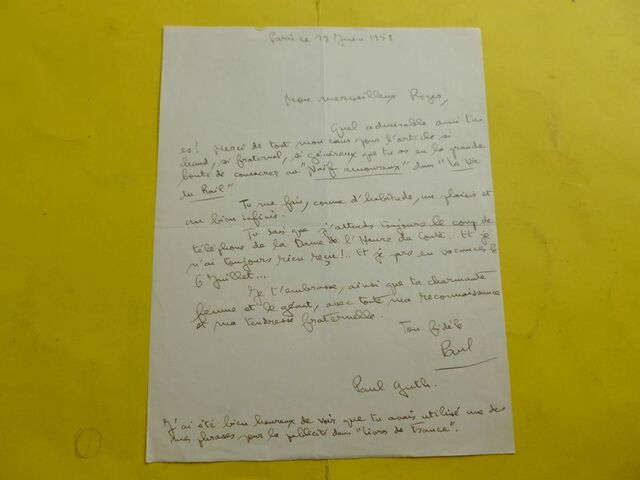 Paris ce 29 Juin 1958
Mon merveilleux Roger,
Quel admirable ami tu
es! Merci de tout mon cœur pour l'article si
chaud, si fraternel, si généreux que tu as eu la grande
bonté de consacrer au "Naïf amoureux" dans "La Vie
du Rail".
Tu me fais, comme d'habitude, un plaisir et
un bien infinis.
Tu sais que j'attends toujours le coup de
téléphone de la Dame de l'Heure du Conte. Et je
n'ai toujours rien reçu!.. Et je pars en vacances le
6 Juillet...
Je t'embrasse, ainsi que ta charmante
femme et le géant, avec toute ma reconnaissance
et ma tendresse fraternelle.
Ton fidèle
Paul
Paul Guth.
J'ai été bien heureux de voir que tu avais utilisé une de
mes phrases pour la publicité dans "Livres de France".